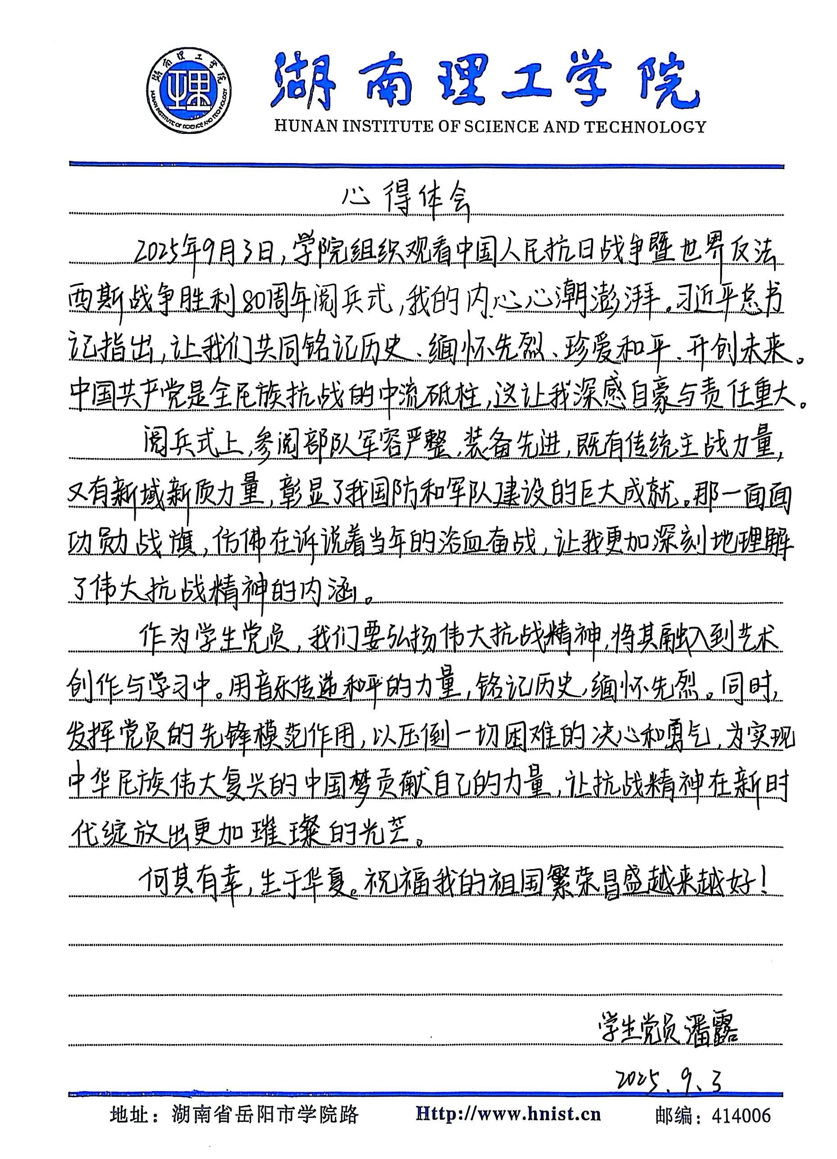 湖南理工学院
HUNAN INSTITUTE OF SCIENCE AND TECHNOLOGY
湖南理工学院
HUNAN INSTITUTE OF SCIENCE AND TECHNOLOGY
心得体会
2025年9月3日,学院组织观看中国人民抗日战争暨世界反法
西斯战争胜利80周年阅兵式,我的内心心潮澎湃。习近平总书
记指出,让我们共同铭记历史、缅怀先烈、珍爱和平、开创未来。
中国共产党是全民族抗战的中流砥柱,这让我深感自豪与责任重大。
阅兵式上,参阅部队军容严整,装备先进,既有传统主战力量,
又有新域新质力量,彰显了我国防和军队建设的巨大成就。那一面面
功勋战旗,仿佛在诉说着当年的浴血奋战,让我更加深刻地理解
了伟大抗战精神的内涵。
作为学生党员,我们要弘扬伟大抗战精神,将其融入到艺术
创作与学习中。用音乐传递和平的力量,铭记历史,缅怀先烈。同时,
发挥党员的先锋模范作用,以压倒一切困难的决心和勇气,为实现
中华民族伟大复兴的中国梦贡献自己的力量,让抗战精神在新时
代绽放出更加璀璨的光芒。
何其有幸,生于华夏。祝福我的祖国繁荣昌盛越来越好!
学生党员潘露
2025.9.3
地址:湖南省岳阳市学院路 Http://www.hnist.cn 邮编:414006